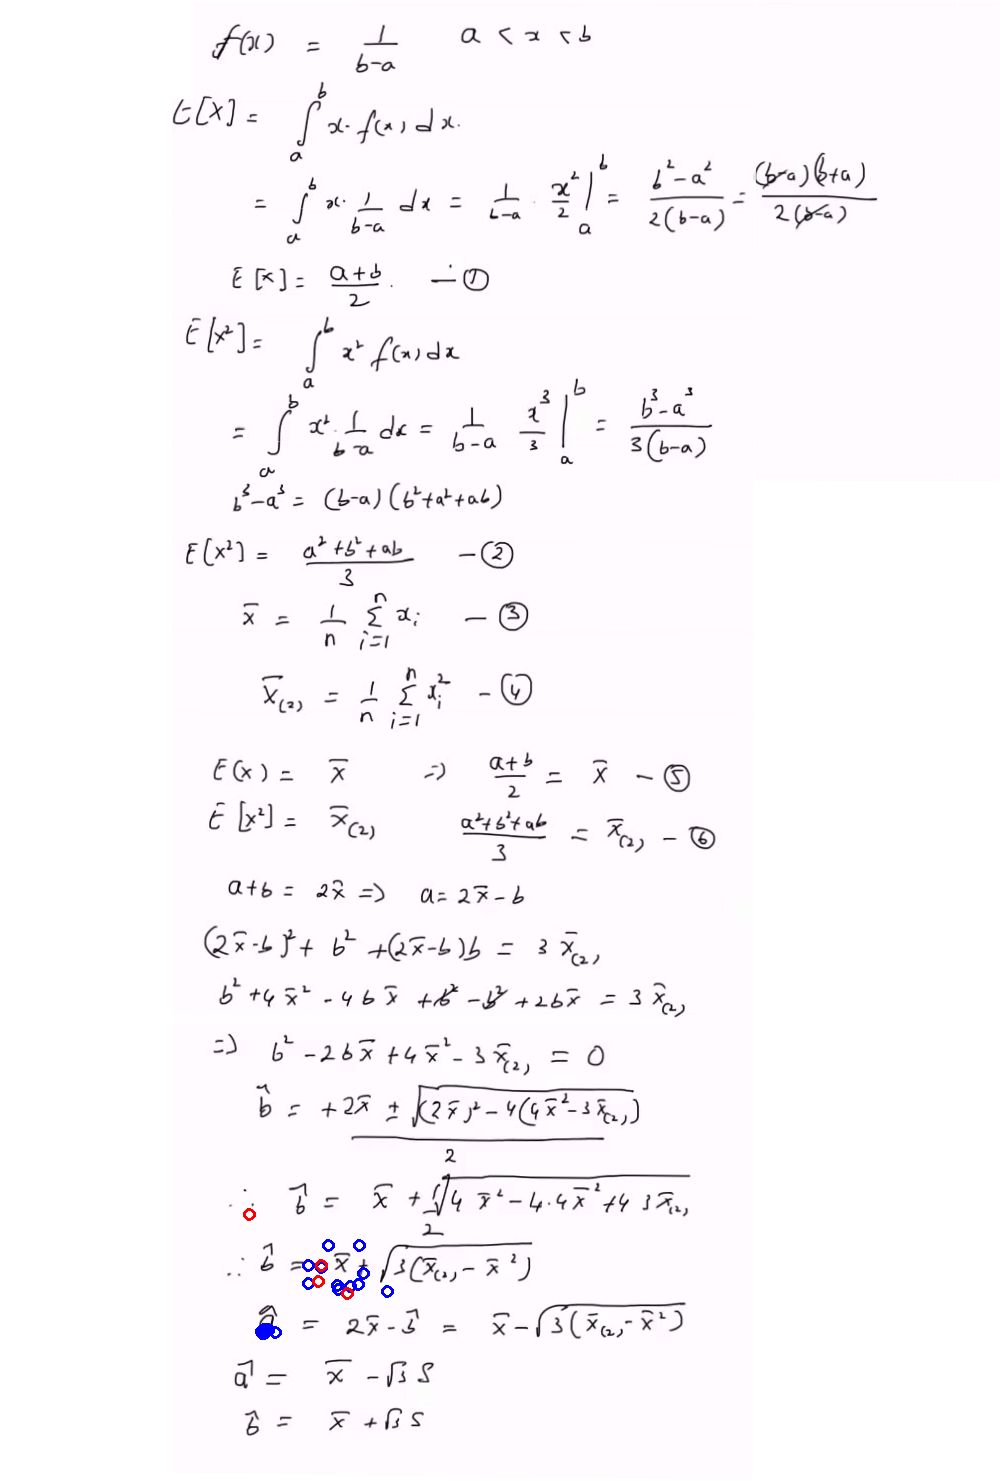 f(x) = 1/(b-a)   a < x < b
E[X] = ∫_a^b x·f(x) dx.
= ∫_a^b x·1/(b-a) dx = 1/(b-a) · x²/2 |_a^b = (b²-a²)/(2(b-a)) = (b-a)(b+a)/(2(b-a))
E[x] = (a+b)/2. — ①
E[x²] = ∫_a^b x² f(x) dx
= ∫_a^b x²·1/(b-a) dx = 1/(b-a) x³/3 |_a^b = (b³-a³)/(3(b-a))
b³-a³ = (b-a)(b²+a²+ab)
E[x²] = (a²+b²+ab)/3 — ②
x̄ = 1/n Σ_{i=1}^n x_i — ③
x̄_(2) = 1/n Σ_{i=1}^n x_i² — ④
E(x) = x̄ ⇒ (a+b)/2 = x̄ — ⑤
E[x²] = x̄_(2)   (a²+b²+ab)/3 = x̄_(2) — ⑥
a+b = 2x̄ ⇒ a = 2x̄-b
(2x̄-b)² + b² + (2x̄-b)b = 3x̄_(2)
b² + 4x̄² - 4bx̄ + b² - b² + 2bx̄ = 3x̄_(2)
⇒ b² - 2bx̄ + 4x̄² - 3x̄_(2) = 0
b̂ = (+2x̄ ± √((2x̄)² - 4(4x̄²-3x̄_(2))))/2
∴ b̂ = x̄ + √(4x̄² - 4·4x̄² + 4 3x̄_(2))/2
∴ b̂ = x̄ + √(3(x̄_(2) - x̄²))
â = 2x̄ - b̂ = x̄ - √(3(x̄_(2) - x̄²))
â = x̄ - √3 S
b̂ = x̄ + √3 S